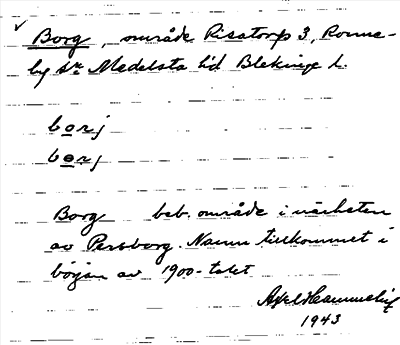 Borg, område Risatorp 3, Ronne-
by sn Medelsta hd Blekinge l.
borj
borj
Borg beb. område i närheten
av Persborg. Namn tillkommet i
början av 1900-talet
Axel
1943